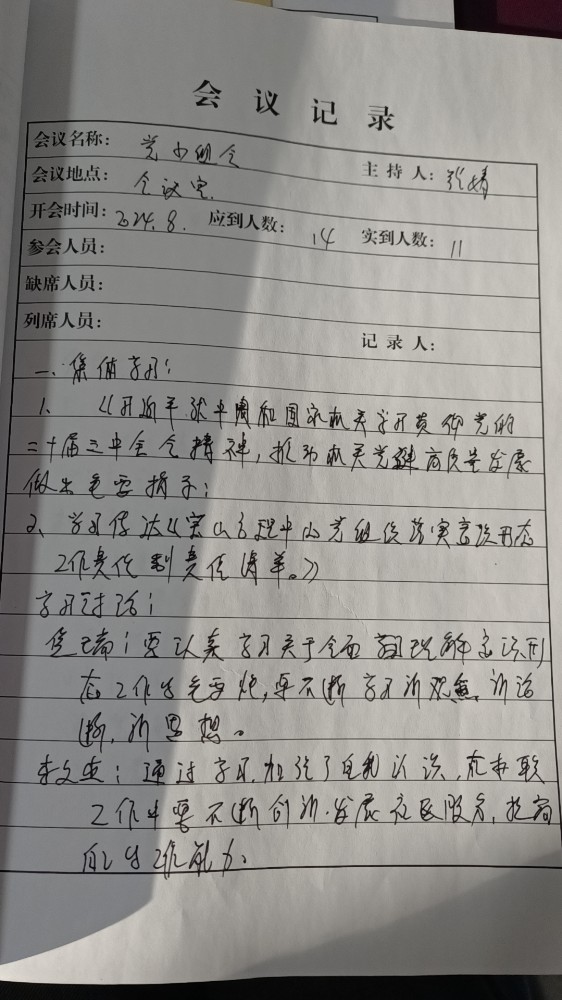 会议记录
会议名称： 党小组会 主持人：张婧
会议地点： 会议室.
开会时间：2024.8. 应到人数： 14 实到人数：11
参会人员：
缺席人员：
列席人员： 记录人：
一、集体学习：
1、《习近平就中央和国家机关学习贯彻党的
二十届三中全会精神，推动机关党建高质量发展
做出重要指示；
2、学习传达《 中心党组织落实意识形态
工作责任制责任清单。》
学习讨论：
要认真学习关于全面 理解意识形
态工作的重要性，要不断学习新观点、新论
断、新思想。
李文 ：通过学习，加强了自我认识，在本职
工作中要不断创新、发展 服务，提高
自己的工作能力。